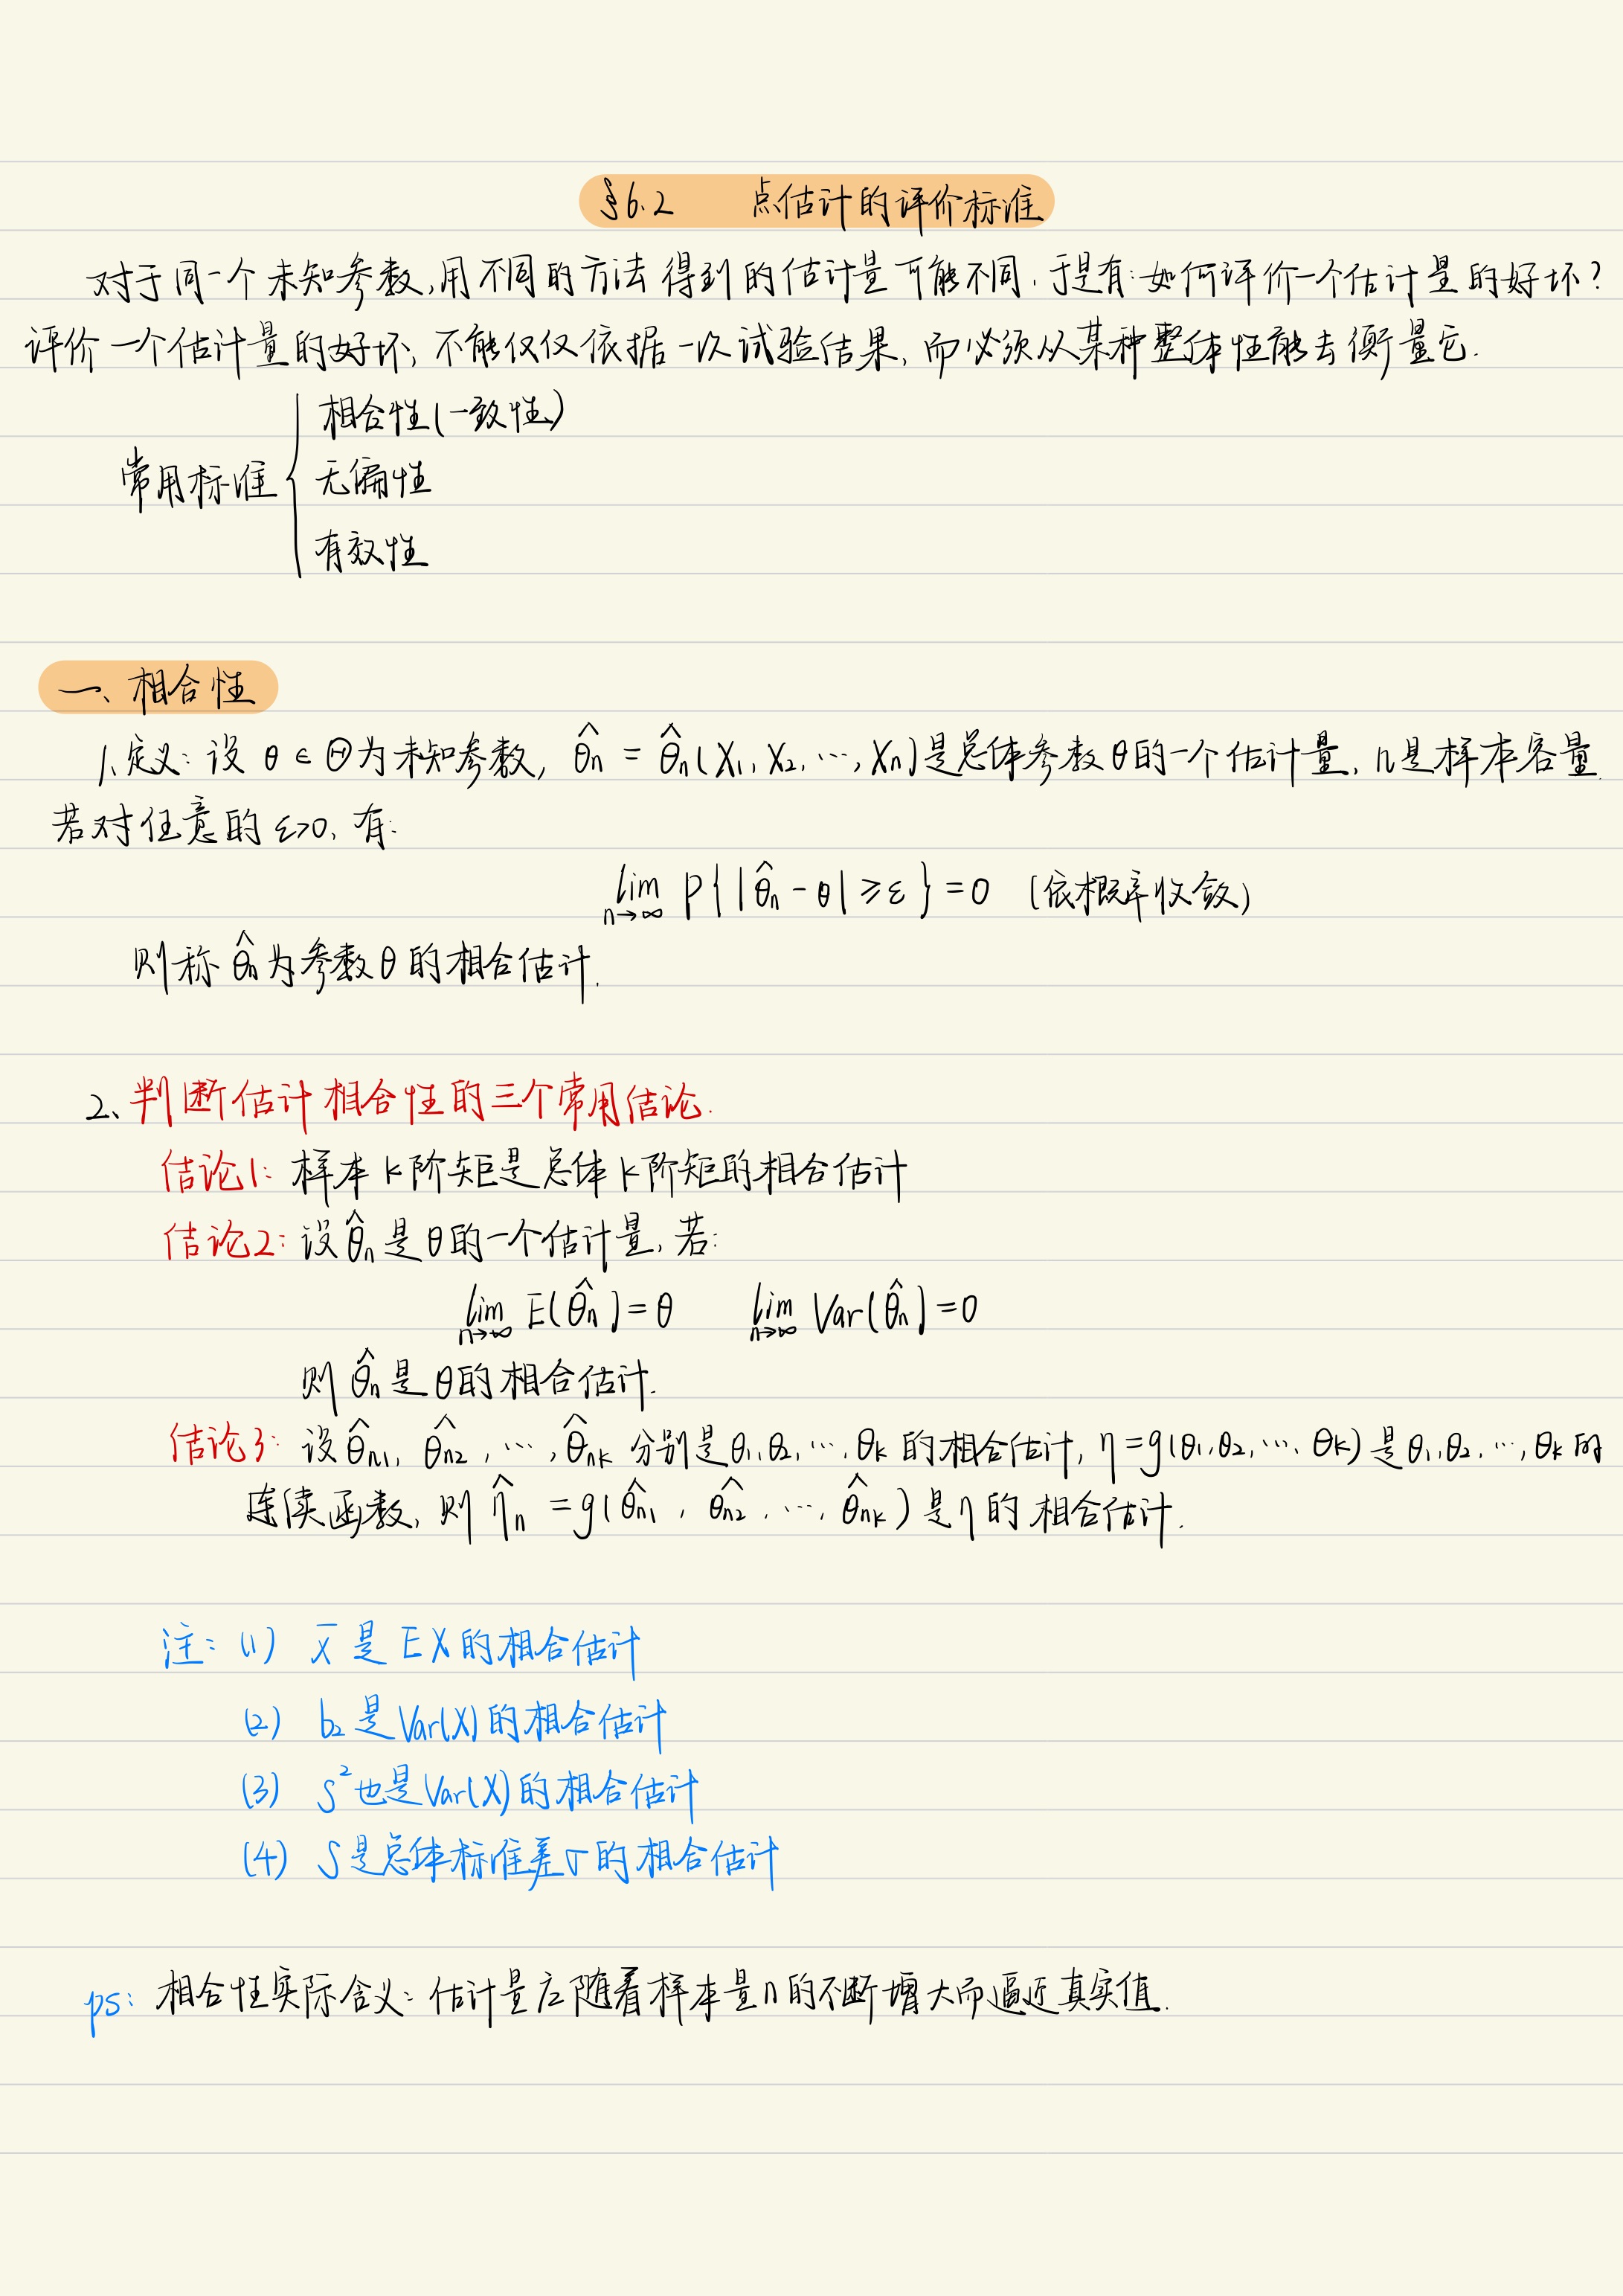 §6.2 点估计的评价标准
对于同一个未知参数,用不同的方法得到的估计量可能不同.于是有:如何评价一个估计量的好坏?
评价一个估计量的好坏,不能仅仅依据一次试验结果,而必须从某种整体性能去衡量它.
常用标准 {
相合性(一致性)
无偏性
有效性
一、相合性
1、定义:设 θ∈Θ为未知参数, θ̂n = θ̂n(X₁, X₂, ⋯, Xn)是总体参数θ的一个估计量, n是样本容量.
若对任意的 ε>0, 有:
lim n→∞ P{|θ̂n - θ| ≥ ε} = 0 (依概率收敛)
则称 θ̂n为参数θ的相合估计.
2、判断估计相合性的三个常用结论.
结论1: 样本k阶矩是总体k阶矩的相合估计
结论2: 设θ̂n是θ的一个估计量, 若:
lim n→∞ E(θ̂n) = θ lim n→∞ Var(θ̂n) = 0
则 θ̂n是θ的相合估计.
结论3: 设θ̂n1, θ̂n2, ⋯, θ̂nk 分别是θ₁,θ₂,⋯,θk 的相合估计, η=g(θ₁,θ₂,⋯,θk)是θ₁,θ₂,⋯,θk的
连续函数, 则 η̂n = g(θ̂n1, θ̂n2, ⋯, θ̂nk)是η的相合估计.
注: (1) x̄ 是 EX的相合估计
(2) b₂是Var(X)的相合估计
(3) S²也是Var(X)的相合估计
(4) S是总体标准差σ的相合估计
ps: 相合性实际含义: 估计量应随着样本量n的不断增大而逼近真实值.